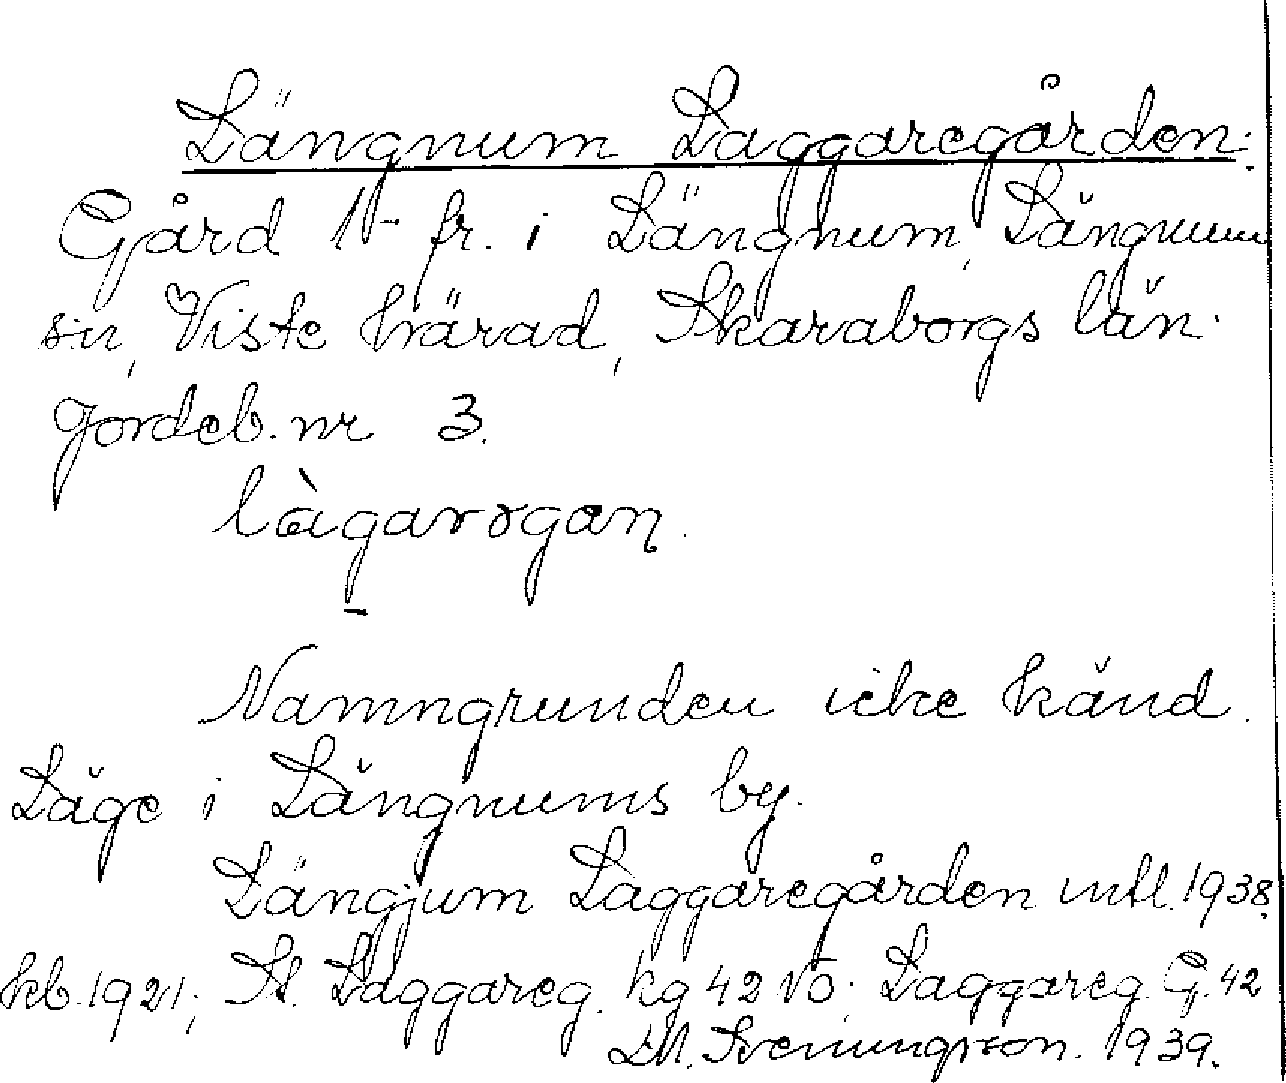 Längnum Laggaregården:
Gård 1- fr. i Längnum, Längnum
sn, Viste härad, Skaraborgs län.
Jordeb. nr 3.
làgarogan.
Namngrunden icke känd.
Läge i Längnums by.
Längjum Laggaregården mtl. 1938.
kb. 1921; St. Laggareg. kg 42 NO; Laggareg. G. 42
Sveningsson. 1939.